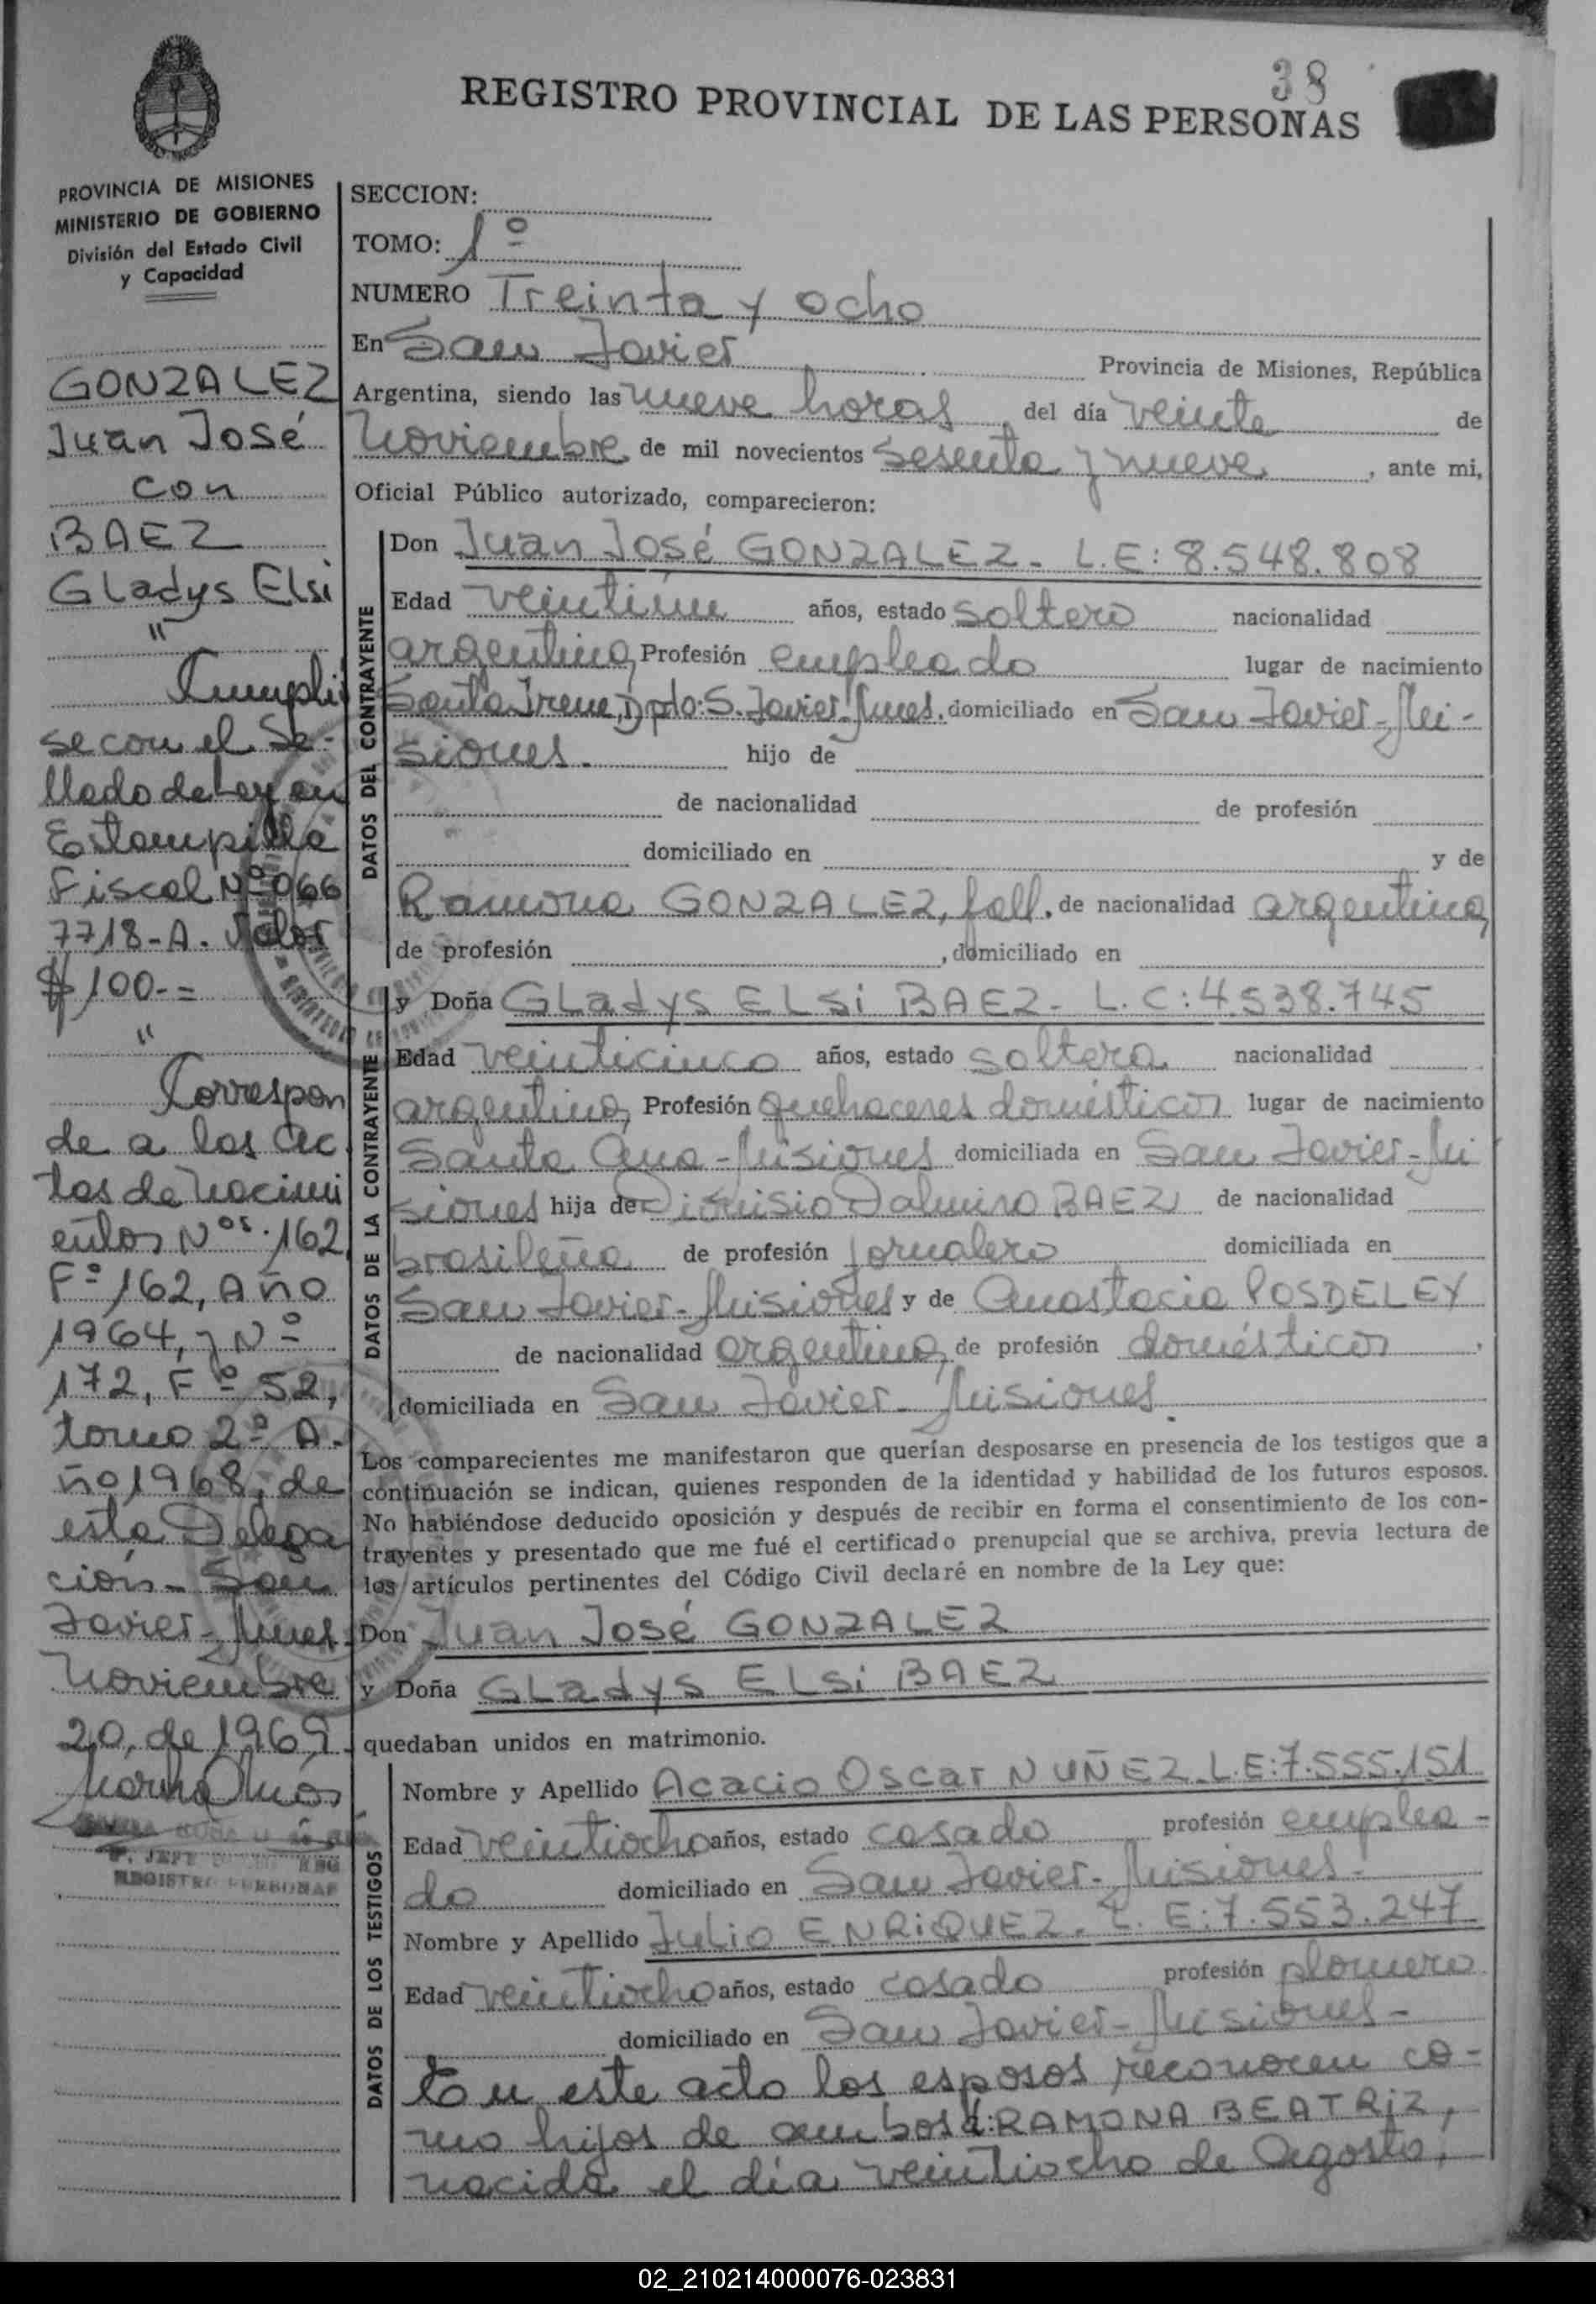 38
REGISTRO PROVINCIAL DE LAS PERSONAS
PROVINCIA DE MISIONES
MINISTERIO DE GOBIERNO
División del Estado Civil
y Capacidad
GONZALEZ
Juan José
con
BAEZ
Gladys Elsi
"
Cumpli
se con el Se-
llado de Ley en
Estampilla
Fiscal Nº 066
7718-A. Valor
$ 100.-=
"
Correspon
de a las ac
tas de nacimi
entos Nos. 162
Fº 162, Año
1964, y Nº
172, Fº 52,
tomo 2º A-
ño 1968, de
esta Delega
ción - San
Javier - Mnes.
Noviembre
20, de 1969.
REGISTRO PERSONAS
SECCION:
TOMO: 1º
NUMERO Treinta y ocho
En San Javier Provincia de Misiones, República
Argentina, siendo las nueve horas, del día veinte de
Noviembre de mil novecientos sesenta y nueve, ante mi,
Oficial Público autorizado, comparecieron:
DATOS DEL CONTRAYENTE
Don Juan José GONZALEZ - L.E: 8.548.808
Edad veintiun años, estado soltero nacionalidad
argentina, Profesión empleado lugar de nacimiento
Santa Irene, Dpto: S. Javier Mnes. domiciliado en San Javier - Mi-
siones. hijo de
de nacionalidad de profesión
domiciliado en y de
Ramona GONZALEZ, fall. de nacionalidad argentina,
de profesión , domiciliado en
DATOS DE LA CONTRAYENTE
y Doña Gladys ELSi BAEZ - L.C: 4.538.745
Edad veinticinco años, estado soltera nacionalidad
argentina, Profesión quehaceres domésticos lugar de nacimiento
Santa Ana - Misiones domiciliada en San Javier - Mi
siones hija de Dionisio Dalmiro BAEZ de nacionalidad
brasileña de profesión jornalero domiciliada en
San Javier - Misiones y de Anastacia POSDELEY
de nacionalidad argentina, de profesión domésticos
domiciliada en San Javier - Misiones.
Los comparecientes me manifestaron que querían desposarse en presencia de los testigos que a
continuación se indican, quienes responden de la identidad y habilidad de los futuros esposos.
No habiéndose deducido oposición y después de recibir en forma el consentimiento de los con-
trayentes y presentado que me fué el certificado prenupcial que se archiva, previa lectura de
los artículos pertinentes del Código Civil declaré en nombre de la Ley que:
Don Juan José GONZALEZ
y Doña GLadys ELSi BAEZ
quedaban unidos en matrimonio.
DATOS DE LOS TESTIGOS
Nombre y Apellido Acacio Oscar NUÑEZ. L.E: 7.555.151
Edad veintiocho años, estado casado profesión emplea-
do domiciliado en San Javier - Misiones -
Nombre y Apellido Julio ENRiQUEZ. L. E: 7.553.247
Edad veintiocho años, estado casado profesión plomero
domiciliado en San Javier - Misiones -
En este acto los esposos reconocen co-
mo hijos de ambos a: RAMONA BEATRiZ,
nacida el día veintiocho de Agosto,
02_210214000076-023831